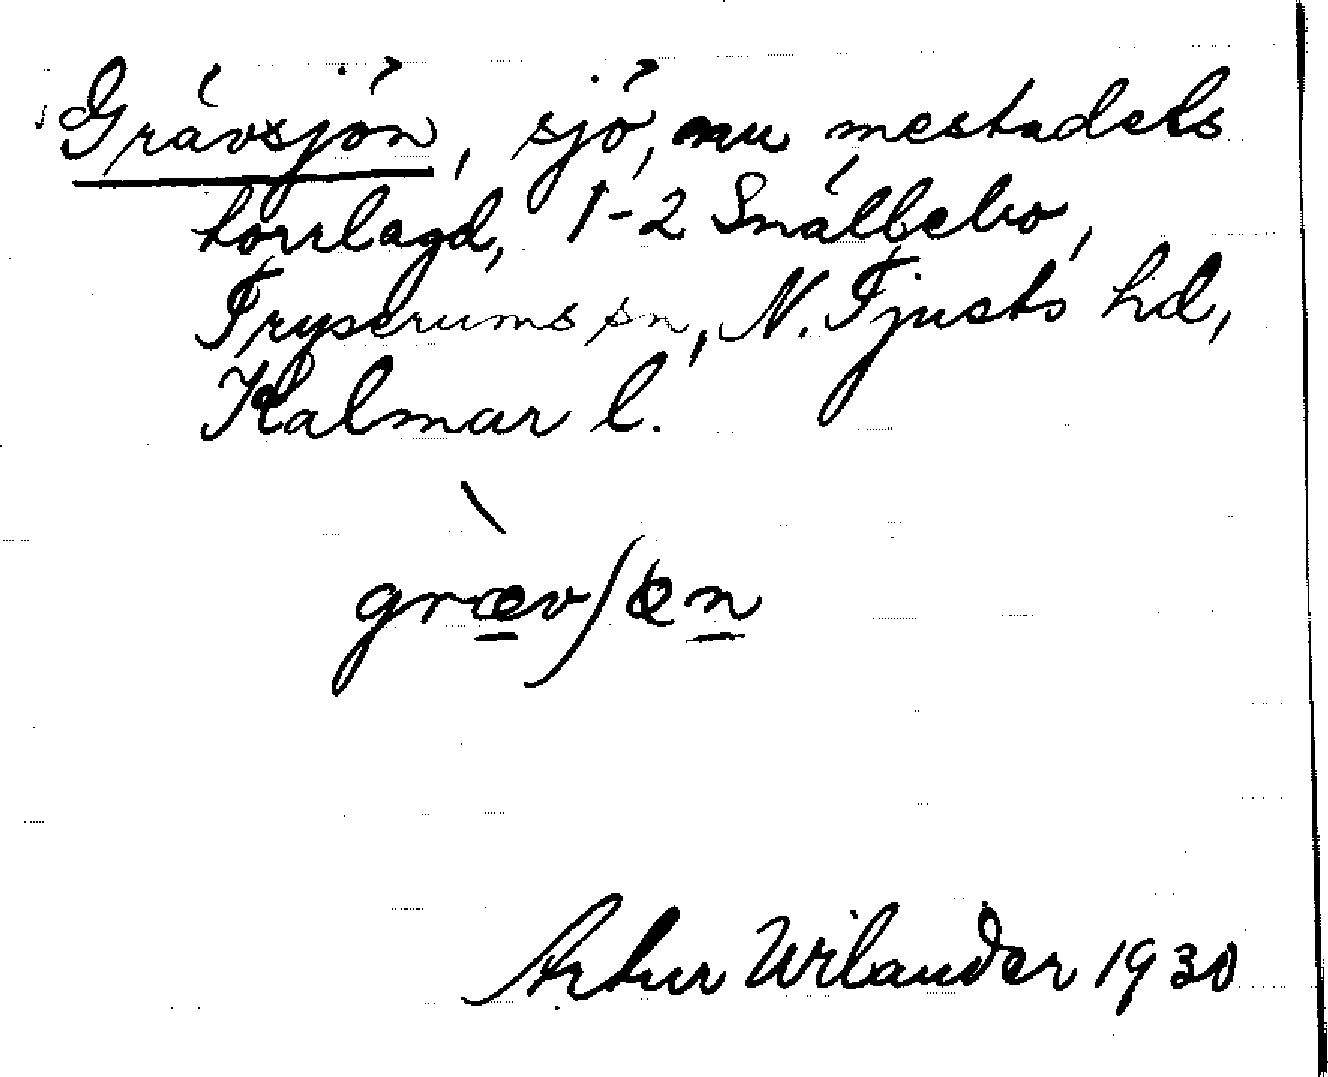 Grävsjön, sjö, nu mestadels
torrlagd, 1-2 Snällebo,
Tryserums sn, N. Tjusts hd,
Kalmar l.
grævʃøn
Artur Wilander 1930